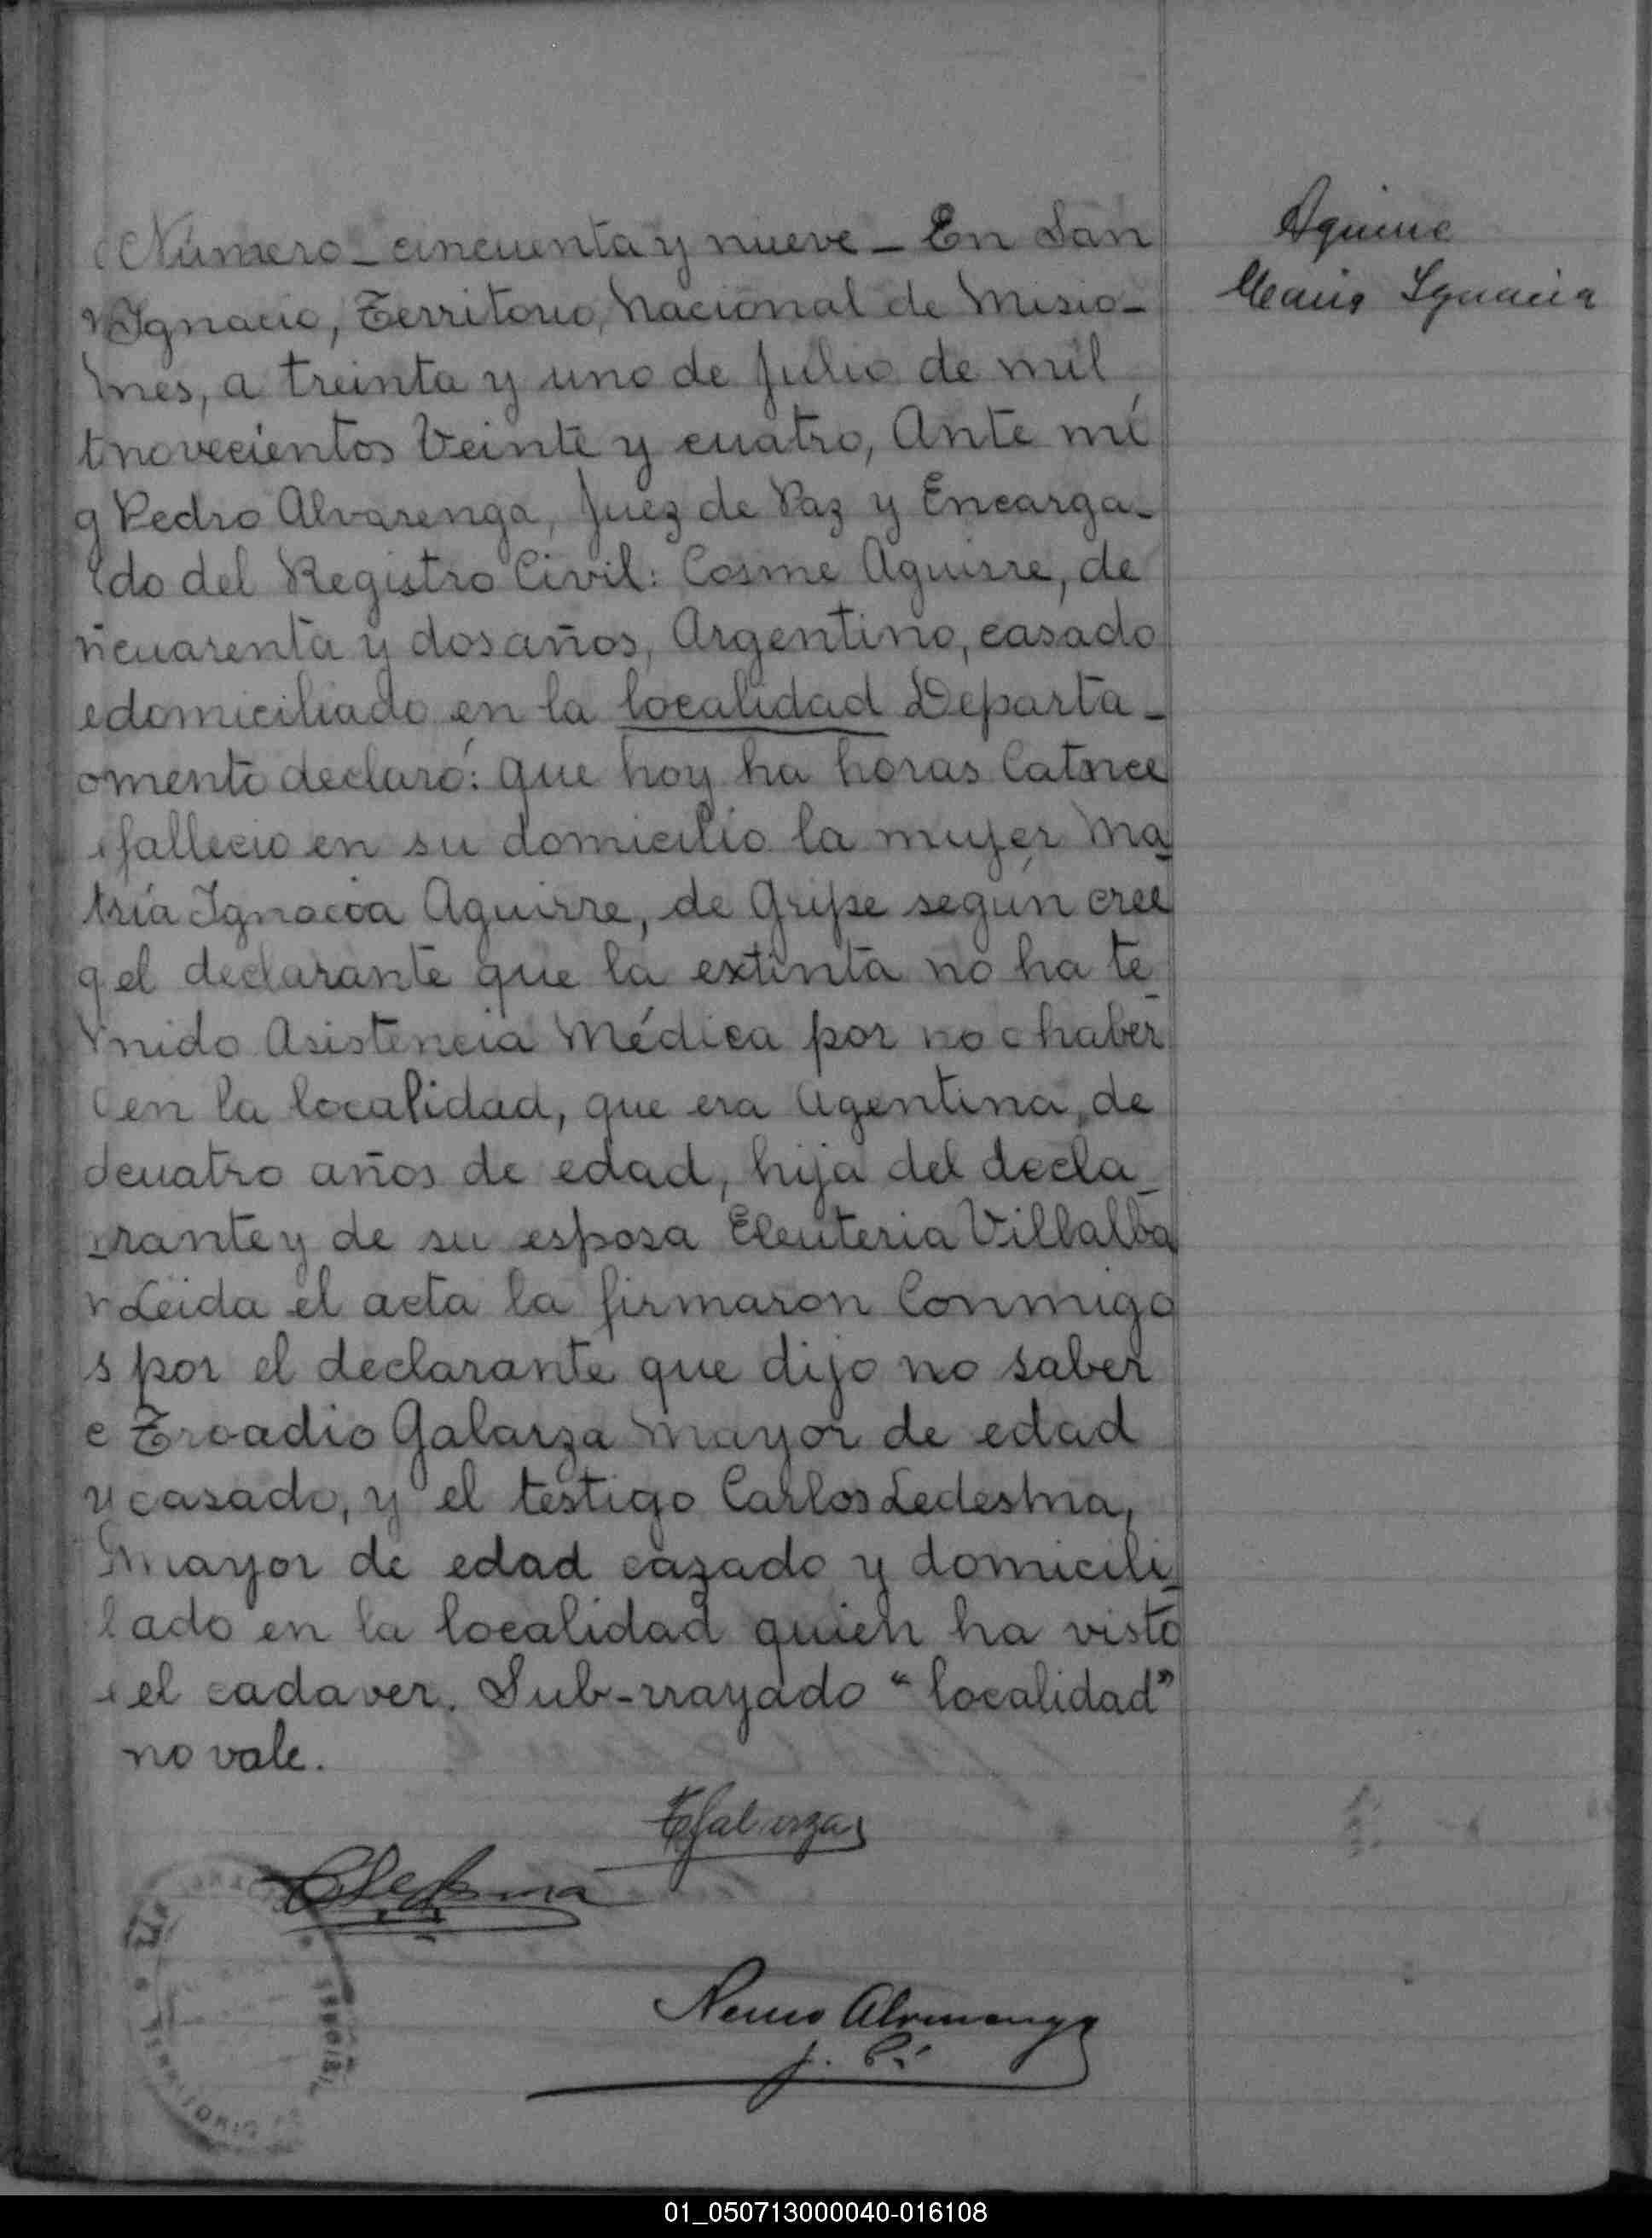 Número_ cincuenta y nueve _ En San
Ignacio, Territorio Nacional de Misio_
nes, a treinta y uno de Julio de mil
novecientos Veinte y cuatro, Ante mí
Pedro Alvarenga, Juez de Paz y Encarga_
do del Registro Civil: Cosme Aguirre, de
cuarenta y dos años, Argentino, casado
domiciliado en la localidad Departa_
mento declaró: que hoy ha horas Catorce
fallecio en su domicilio la mujer Ma_
ría Ignacia Aguirre, de Gripe según cree
el declarante que la extinta no ha te_
nido Asistencia Médica por no haber
en la localidad, que era Agentina, de
cuatro años de edad, hija del decla_
rante y de su esposa Eleuteria Villalba
Leida el acta la firmaron Conmigo
por el declarante que dijo no saber
Troadio Galarza Mayor de edad
casado, y el testigo Carlos Ledesma,
Mayor de edad cazado y domicili_
ado en la localidad quien ha visto
el cadaver. Sub-rrayado "localidad"
no vale.
Aguirre
Maria Ignacia
TGalarza
CLedesma
Pedro Alvarenga
J. P.
01_050713000040-016108